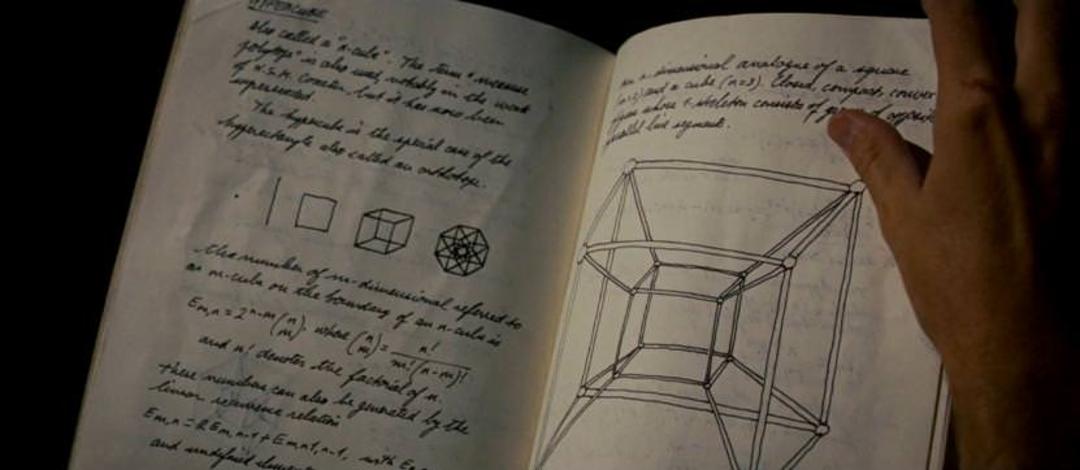 HYPERCUBE
also called a "n-cube". The term "measure
polytope" is also used, notably in the work
of H.S.M. Coxeter, but it has now been
superseded.
The hypercube is the special case of the
hyperrectangle also called an orthotope.
the number of m-dimensional referred to
as m-cube on the boundary of an n-cube is
E m,n = 2^n-m (n m), where (n m) = n! / m!(n-m)!
and n! denotes the factorial of n.
these numbers can also be generated by the
linear recurrence relation
E m,n = 2E m,n-1 + E m-1,n-1, with E
and undefined
an n-dimensional analogue of a square
(n=2) and a cube (n=3). Closed, compact, convex
whose 1-skeleton consists of of opposite
parallel line segments.